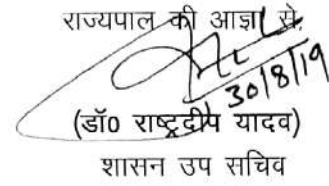 राज्यपाल की आज्ञा से,
30/8/19
(डॉ0 राष्ट्रदीप यादव)
शासन उप सचिव